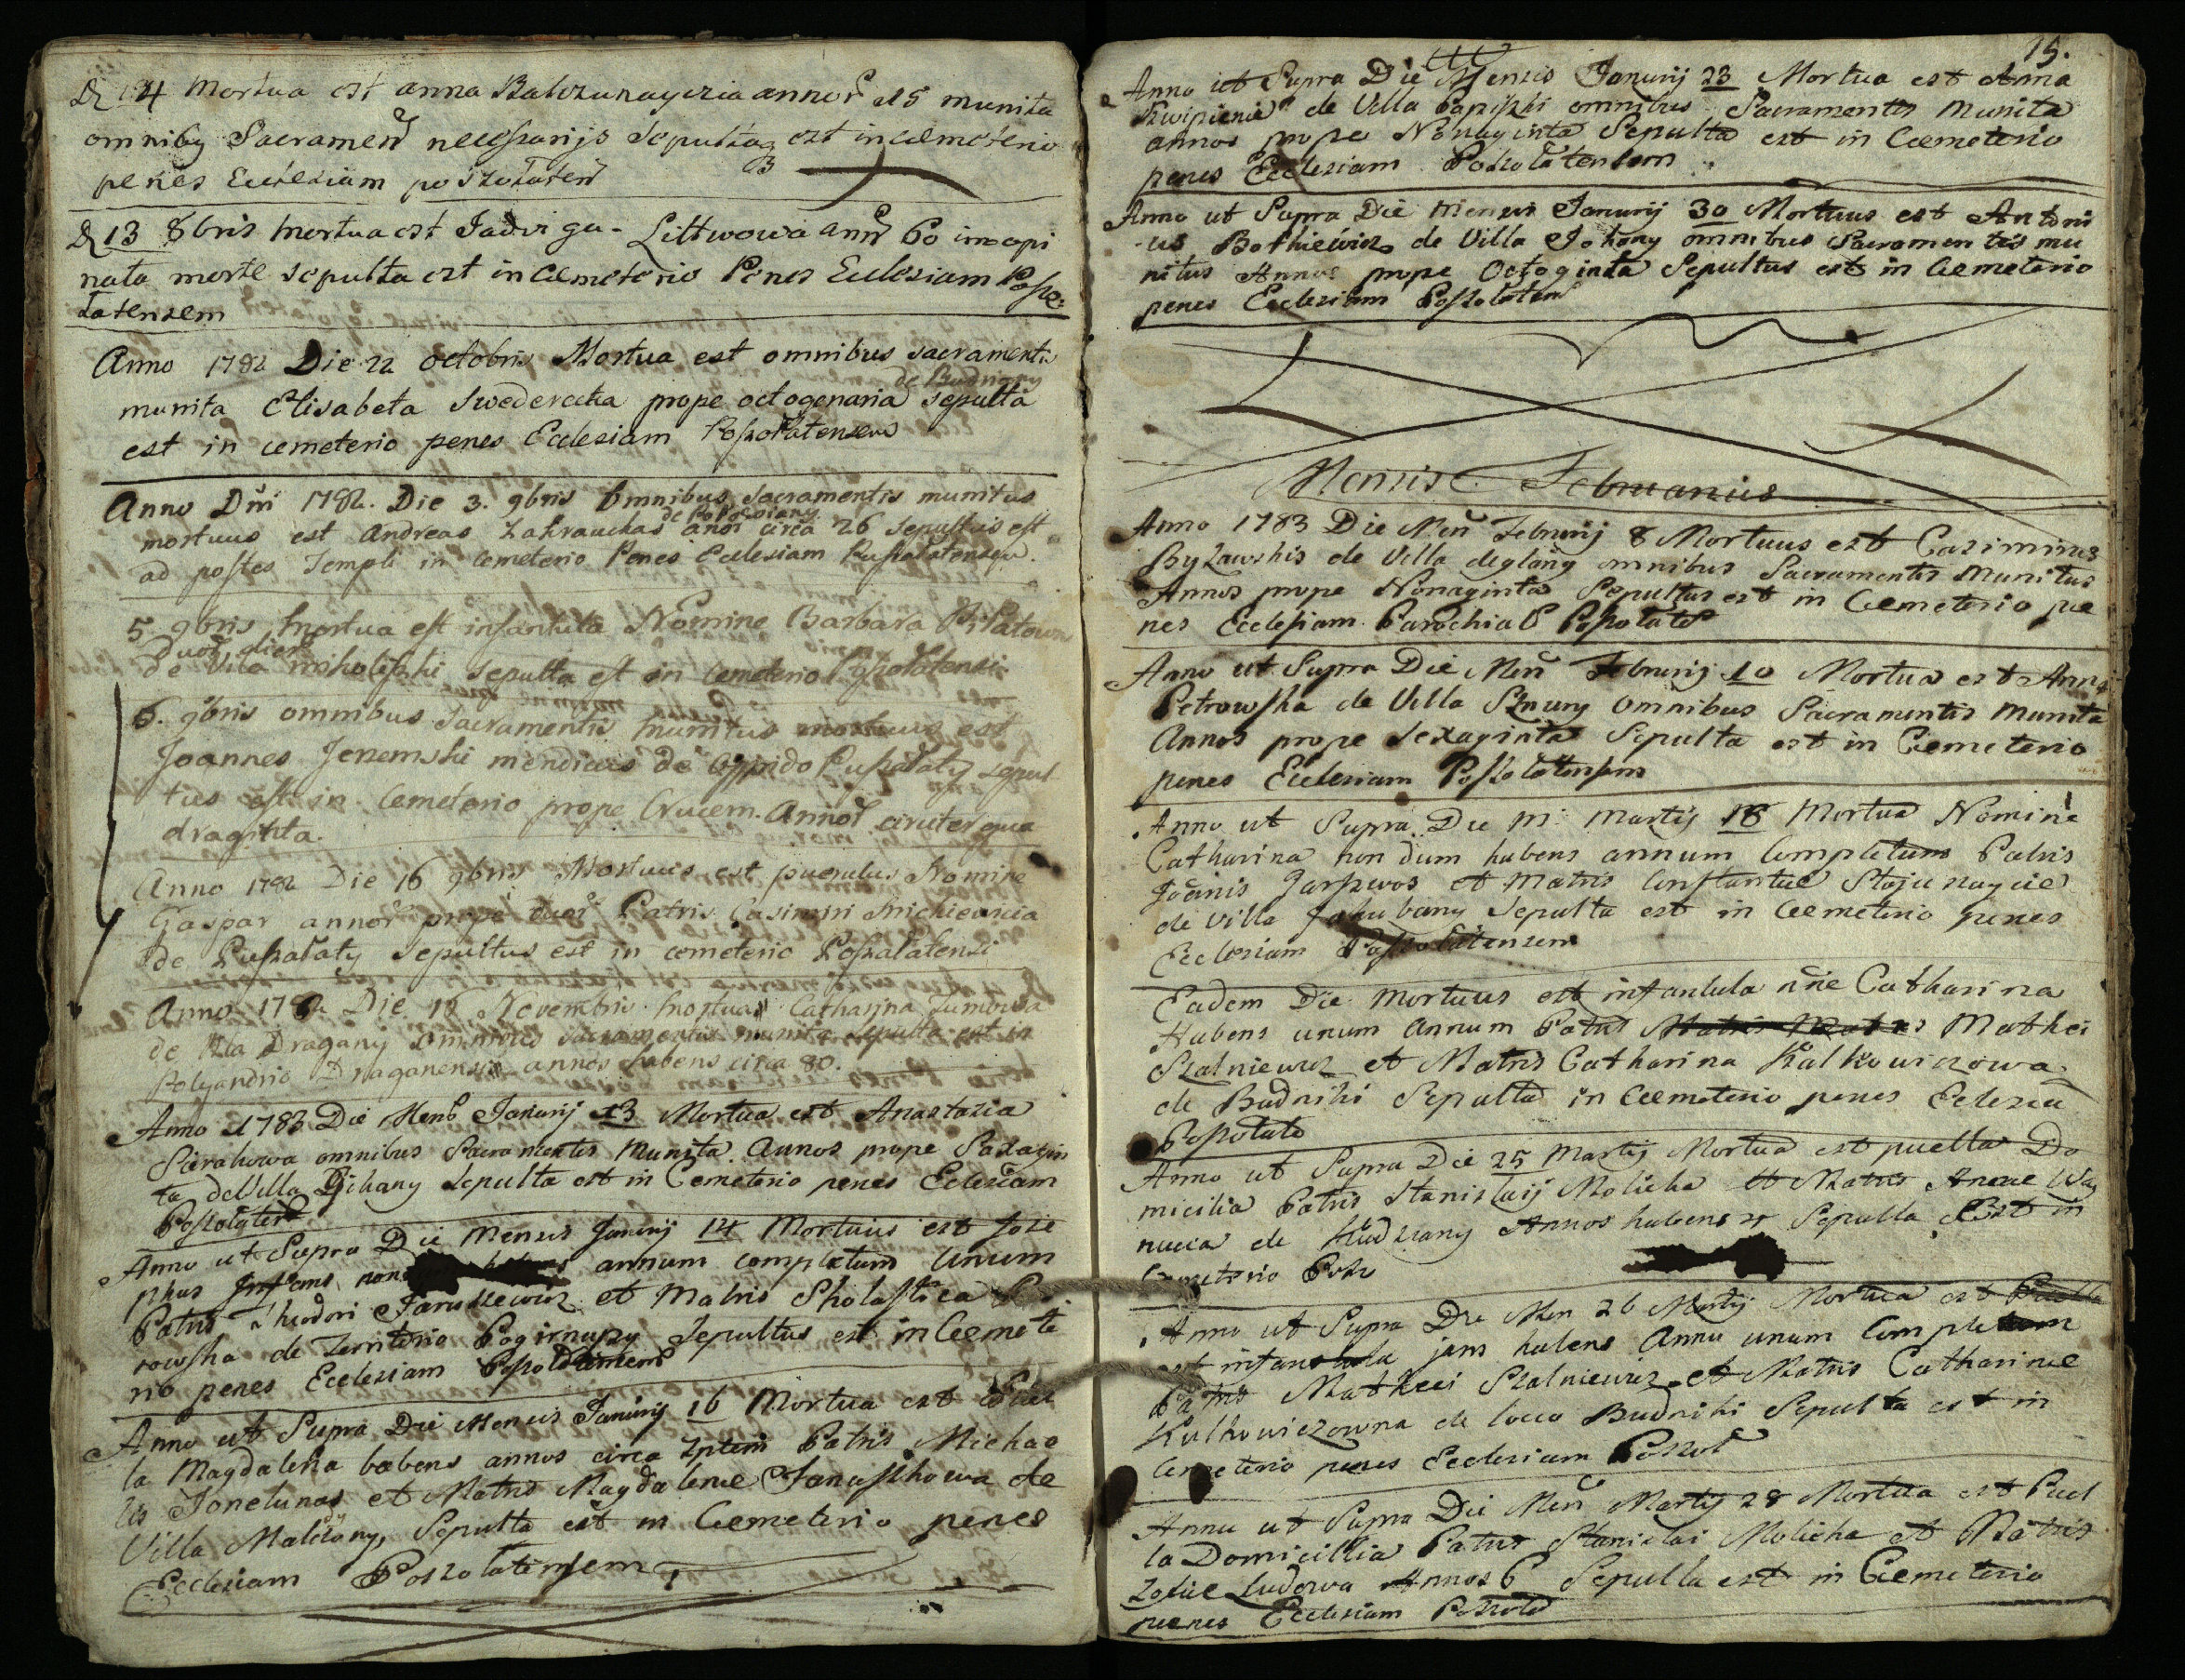 mortua est anna annor 15 munita
omnibus Sacramen necessarijs Sepulta est in cemeterio
penes Ecclesiam poszołaten
D 13 8bris mortua est Jadvi ga - Littwowa ann 60 inopi
nata morte sepulta est in Cemeterio Penes Ecclesiam Posz:
łatensem
Anno 1782 Die 22 octobris Mortua est omnibus sacramentis
de Budniany
munita Elisabeta prope octogenaria sepulta
est in cemeterio penes Ecclesiam
Anno Dni 1782. Die 3. 9bris Omnibus Sacramentis munitus
mortuus est Andreas anor circa 26 sepultus est
ad postes Templi in Cemeterio Penes Ecclesiam
5 9bris mortua est infantula Nomine Barbara
de Villa sepulta est in Cemeterio
6. 9bris omnibus Sacramentis munitus mortuus est
Joannes Jeremski mendicus de oppido Puszałaty sepul
tus est in Cemeterio prope Crucem. Annor circiter qua
draginta.
Anno 1782 Die 16 9bris Mortuus est puerulus Nomine
Gaspar annor prope duor Patris Casimiri
de Puszałaty sepultus est in cemeterio Poszałatensi
Anno 1782 Die 18 Novembris mortua Catharina
de Vila Dragany omnibus sacramentis munita sepulta est in
Polyandrio Draganensi annos habens circa 80.
Anno 1783 Die Mens Januarij 13 Mortua est Anastazia
omnibus Sacramentis Munita Annos prope Saxagin
ta de Villa Sepulta est in Cemeterio penes Eclesiam
Anno ut Supra Die Mensis Januarij 14 Mortuus est Jose
phus Infans non annum completum Unum
Patris Theodori Januszewicz et Matris Skolastica
rowska de Territorio Sepultus est in Cemete
rio penes Ecclesiam
Anno ut Supra Die Mensis Januarij 16 Mortua est Puel
la Magdalena habens annos circa 7ptem Patris Michae
lis Jonelunas et Matris Magdalenæ de
Villa Sepulta est in Cemeterio penes
Ecclesiam Poszołatensem
15.
Anno ut Supra Die Mensis Januarij 23 Mortua est Anna
de Villa omnibus Sacramentis Munita
annos prope Nonaginta Sepulta est in Cemeterio
penes Ecclesiam Poszołatensem
Anno ut Supra Die Mensis Januarij 30 Mortuus est Antoni
us de Villa omnibus Sacramentis mu
nitus Annos prope Octoginta Sepultus est in Cemeterio
penes Ecclesiam Poszołaten
Mensis Februarius
Anno 1783 Die Men Februarij 8 Mortuus est Casimirus
de Villa omnibus Sacramentis Munitus
Annos prope Nonaginta Sepultus est in Cemeterio pe
nes Ecclesiam Parochial Poszołate
Anno ut Supra Die Men Februarij 10 Mortua est Anna
Petrowska de Villa Sznury Omnibus Sacramentis Munita
Annos prope Sexaginta Sepulta est in Cemeterio
penes Ecclesiam Poszołatensem
Anno ut Supra Die M: Martij 18 Mortua Nomine
Catharina non dum habens annum Completum Patris
Joanis et Matris Constantiæ
de Villa Jakubany Sepulta est in Cemeterio penes
Ecclesiam Poszołatensem
Eadem Die Mortuus est infantula nne Catharina
Habens unum Annum Patris Mathei
Szalniewicz et Matris Catharina
de Budniki Sepulta in Cemeterio penes
Anno ut Supra Die 25 Martij Mortua est puella Do
micilia Patris Stanislaij Molicka et Matris Annæ
de Annos habens Sepulta Est in
Cemeterio
Anno ut Supra Die Men 26 Martij Mortua est
est infantula jam habens Annu unum Completum
Patris Matheei Szalniewicz et Matris Catharinæ
de loco Budniki Sepulta est in
Cemeterio penes Ecclesiam Poszoł
Anno ut Supra Die Men Martij 28 Mortua est Puel
la Domicillia Patris Stanislai Molicka et Matris
Zofiæ Ludowa Annos 6 Sepulta est in Cemeterio
penes Ecclesiam